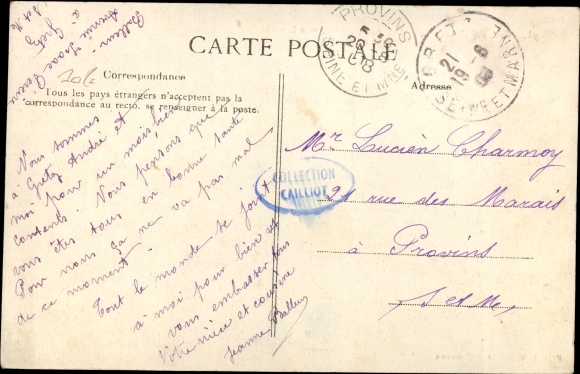 CARTE POSTALE
Correspondance
Tous les pays étrangers n'acceptent pas la
correspondance au recto, se renseigner à la poste.
Adresse
PROVINS
SEINE ET MNE
GRETZ
SEINE ET MARNE
21 -8
COLLECTION
CAILLIOT
Mr Lucien Charmoy
21 rue des Marais
à Provins
S et Me
Nous sommes
à Gretz André et
moi pour un mois bien
contents. Nous pensons que
vous êtes tous en bonne santé
Pour nous ça ne va pas mal
de ce moment.
Tout le monde se joint
à moi pour bien et
vous embasser tous
Votre nièce et cousine
Jeanne Balleux
Balleux
Avenue
à Gretz
S et M